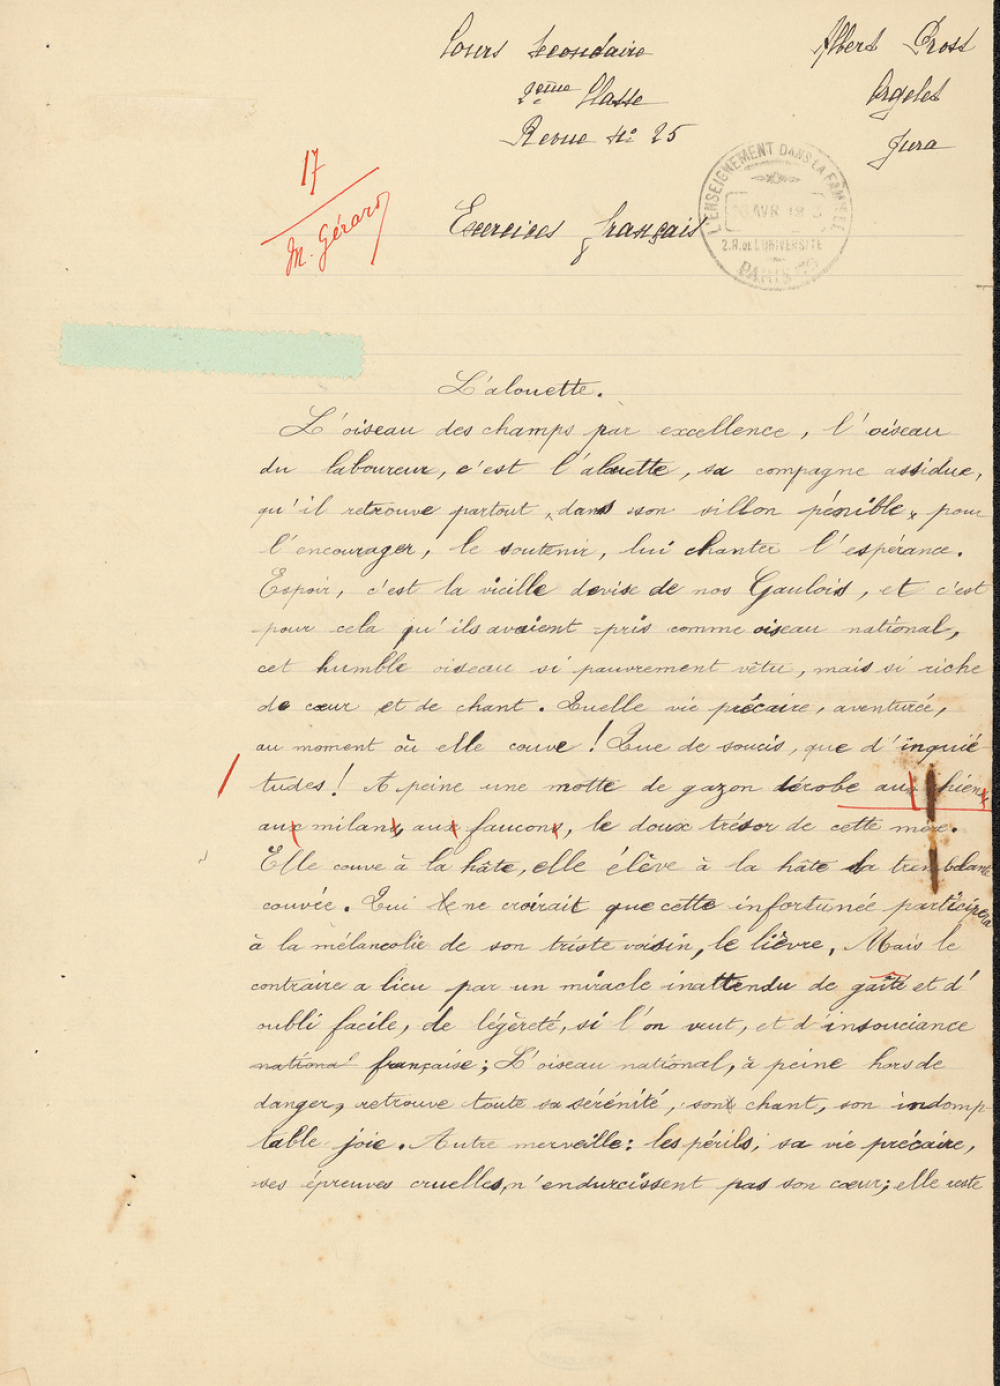 Cours Secondaire
2ème Classe
Revue No 25
Albert Prost
Orgelet
Jura
17
M. Gérard
Exercices français
L'ENSEIGNEMENT DANS LA FAMILLE
AVR
2.R. DE L'UNIVERSITÉ
PARIS
L'alouette.
L'oiseau des champs par excellence, l'oiseau
du laboureur, c'est l'alouette, sa compagne assidue,
qu'il retrouve partout, dans son sillon pénible, pour
l'encourager, le soutenir, lui chanter l'espérance.
Espoir, c'est la vieille devise de nos Gaulois, et c'est
pour cela qu'ils avaient pris comme oiseau national,
cet humble oiseau si pauvrement vêtu, mais si riche
de cœur et de chant. Quelle vie précaire, aventurée,
au moment où elle couve ! Que de soucis, que d'inquié-
tudes! A peine une motte de gazon dérobe aux chiens
aux milans, aux faucons, le doux trésor de cette mère.
Elle couve à la hâte, elle élève à la hâte la tremblante
couvée. Qui ne croirait que cette infortunée participera
à la mélancolie de son triste voisin, le lièvre, Mais le
contraire a lieu par un miracle inattendu de gaîté et d'
oubli facile, de légèreté, si l'on veut, et d'insouciance
national française; L'oiseau national, à peine hors de
danger, retrouve toute sa sérénité, sont chant, son indomp-
table joie. Autre merveille: les périls, sa vie précaire,
ses épreuves cruelles, n'endurcissent pas son cœur; elle reste